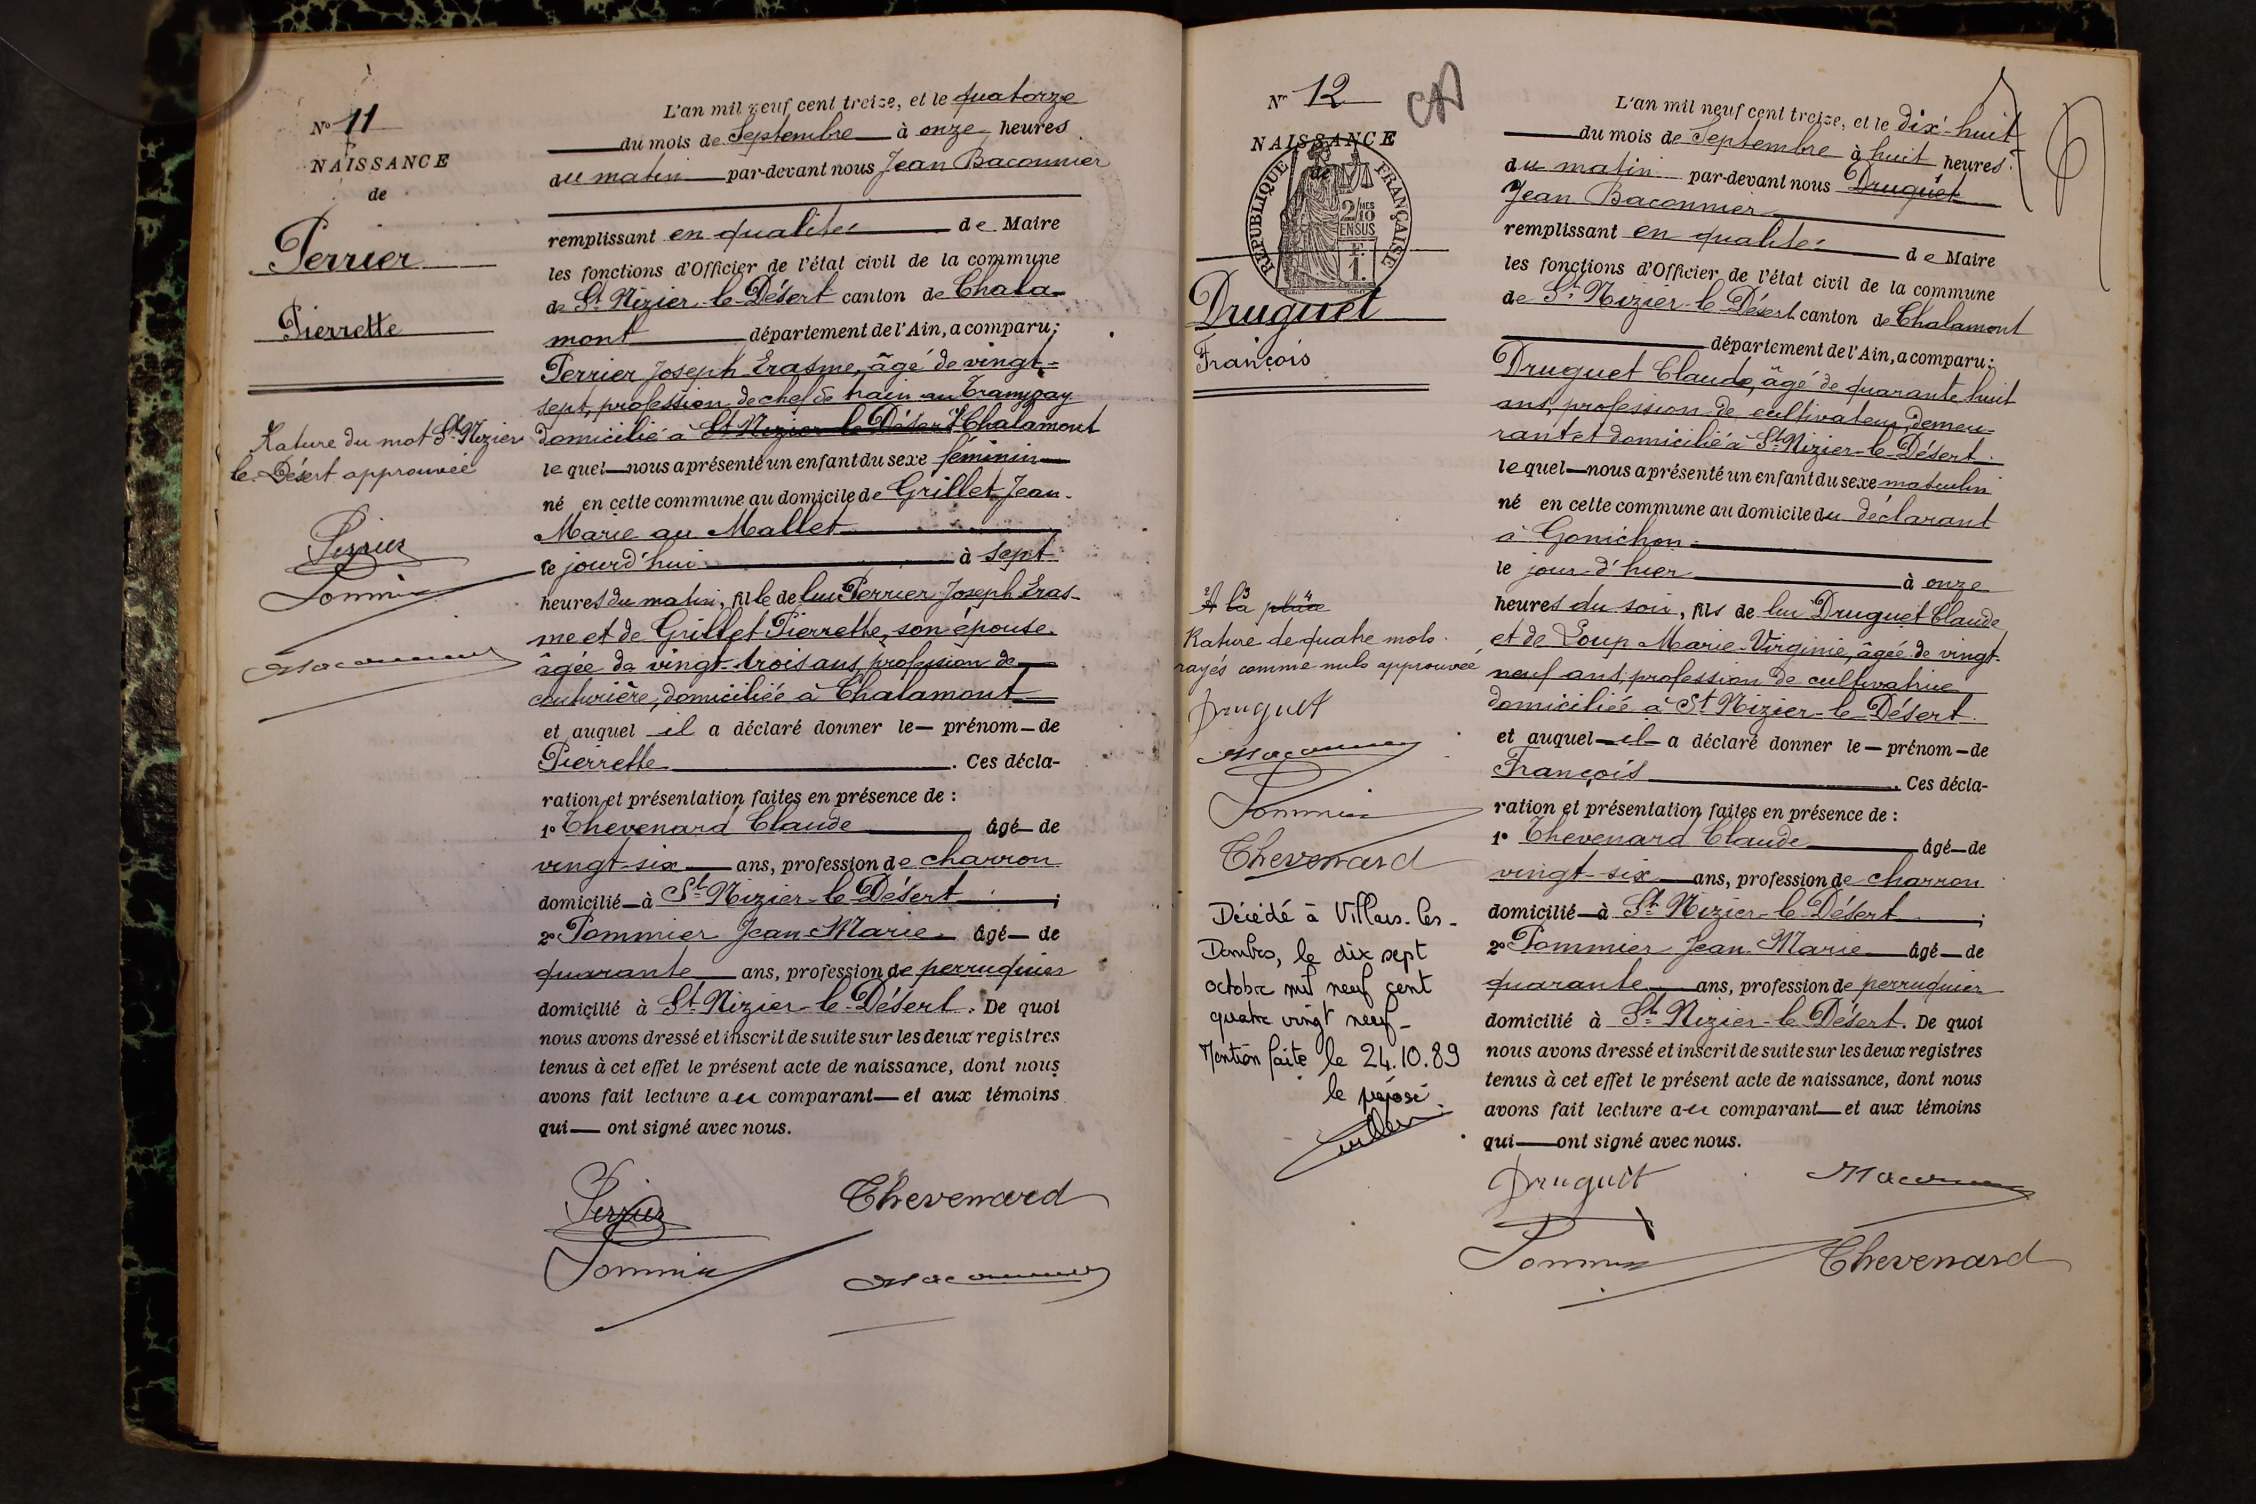 N° 11
NAISSANCE
de
Perrier
Pierrette
Rature du mot St Nizier
le-Désert approuvée
Perrier
Pommier
Baconnier
L'an mil neuf cent treize, et le quatorze
du mois de Septembre à onze heures
du matin par-devant nous Jean Baconnier
remplissant en qualité de Maire
les fonctions d'Officier de l'état civil de la commune
de St Nizier-le-Désert canton de Chala-
mont département de l'Ain, a comparu;
Perrier Joseph Erasme, âgé de vingt-
sept, profession de chef de train au Tramway
domicilié à St Nizier le Désert Chalamont
lequel nous a présenté un enfant du sexe féminin
né en cette commune au domicile de Grillet Jean-
Marie au Mallet
le jourd'hui à sept
heures du matin, fille de lui Perrier Joseph Eras-
me et de Grillet Pierrette, son épouse.
âgée de vingt-trois ans, profession de
couturière, domiciliée à Chalamont
et auquel il a déclaré donner le prénom de
Pierrette. Ces décla-
ration et présentation faites en présence de :
1° Thevenard Claude âgé de
vingt-six ans, profession de charron
domicilié à St Nizier-le-Désert ;
2° Pommier Jean-Marie âgé de
quarante ans, profession de perruquier
domicilié à St Nizier-le-Désert. De quoi
nous avons dressé et inscrit de suite sur les deux registres
tenus à cet effet le présent acte de naissance, dont nous
avons fait lecture au comparant et aux témoins
qui ont signé avec nous.
Perrier Thevenard
Pommier Baconnier
N° 12
NAISSANCE
de
RÉPUBLIQUE FRANÇAISE
2/10
EN SUS
1.
Druguet
François
la place
Rature de quatre mots
rayés comme nuls approuvée
Druguet
Baconnier
Pommier
Thevenard
Décédé à Villars-les-
Dombes, le dix sept
octobre mil neuf cent
quatre vingt neuf-
Mention faite le 24.10.89
le préposé
L'an mil neuf cent treize, et le dix-huit
du mois de Septembre à huit heures
du matin par-devant nous Druguet
Jean Baconnier
remplissant en qualité de Maire
les fonctions d'Officier de l'état civil de la commune
de St Nizier-le-Désert canton de Chalamont
département de l'Ain, a comparu;
Druguet Claude, âgé de quarante huit
ans, profession de cultivateur, demeu-
rant et domicilié à St Nizier-le-Désert.
lequel nous a présenté un enfant du sexe masculin
né en cette commune au domicile du déclarant
à Gonichon
le jour d'hier à onze
heures du soir, fils de lui Druguet Claude
et de Loup Marie-Virginie, âgée de vingt-
neuf ans, profession de cultivatrice
domiciliée à St Nizier-le-Désert.
et auquel il a déclaré donner le prénom de
François. Ces décla-
ration et présentation faites en présence de :
1° Thevenard Claude âgé de
vingt-six ans, profession de charron
domicilié à St Nizier-le-Désert ;
2° Pommier Jean-Marie âgé de
quarante ans, profession de perruquier
domicilié à St Nizier-le-Désert. De quoi
nous avons dressé et inscrit de suite sur les deux registres
tenus à cet effet le présent acte de naissance, dont nous
avons fait lecture au comparant et aux témoins
qui ont signé avec nous.
Druguet Baconnier
Pommier Thevenard